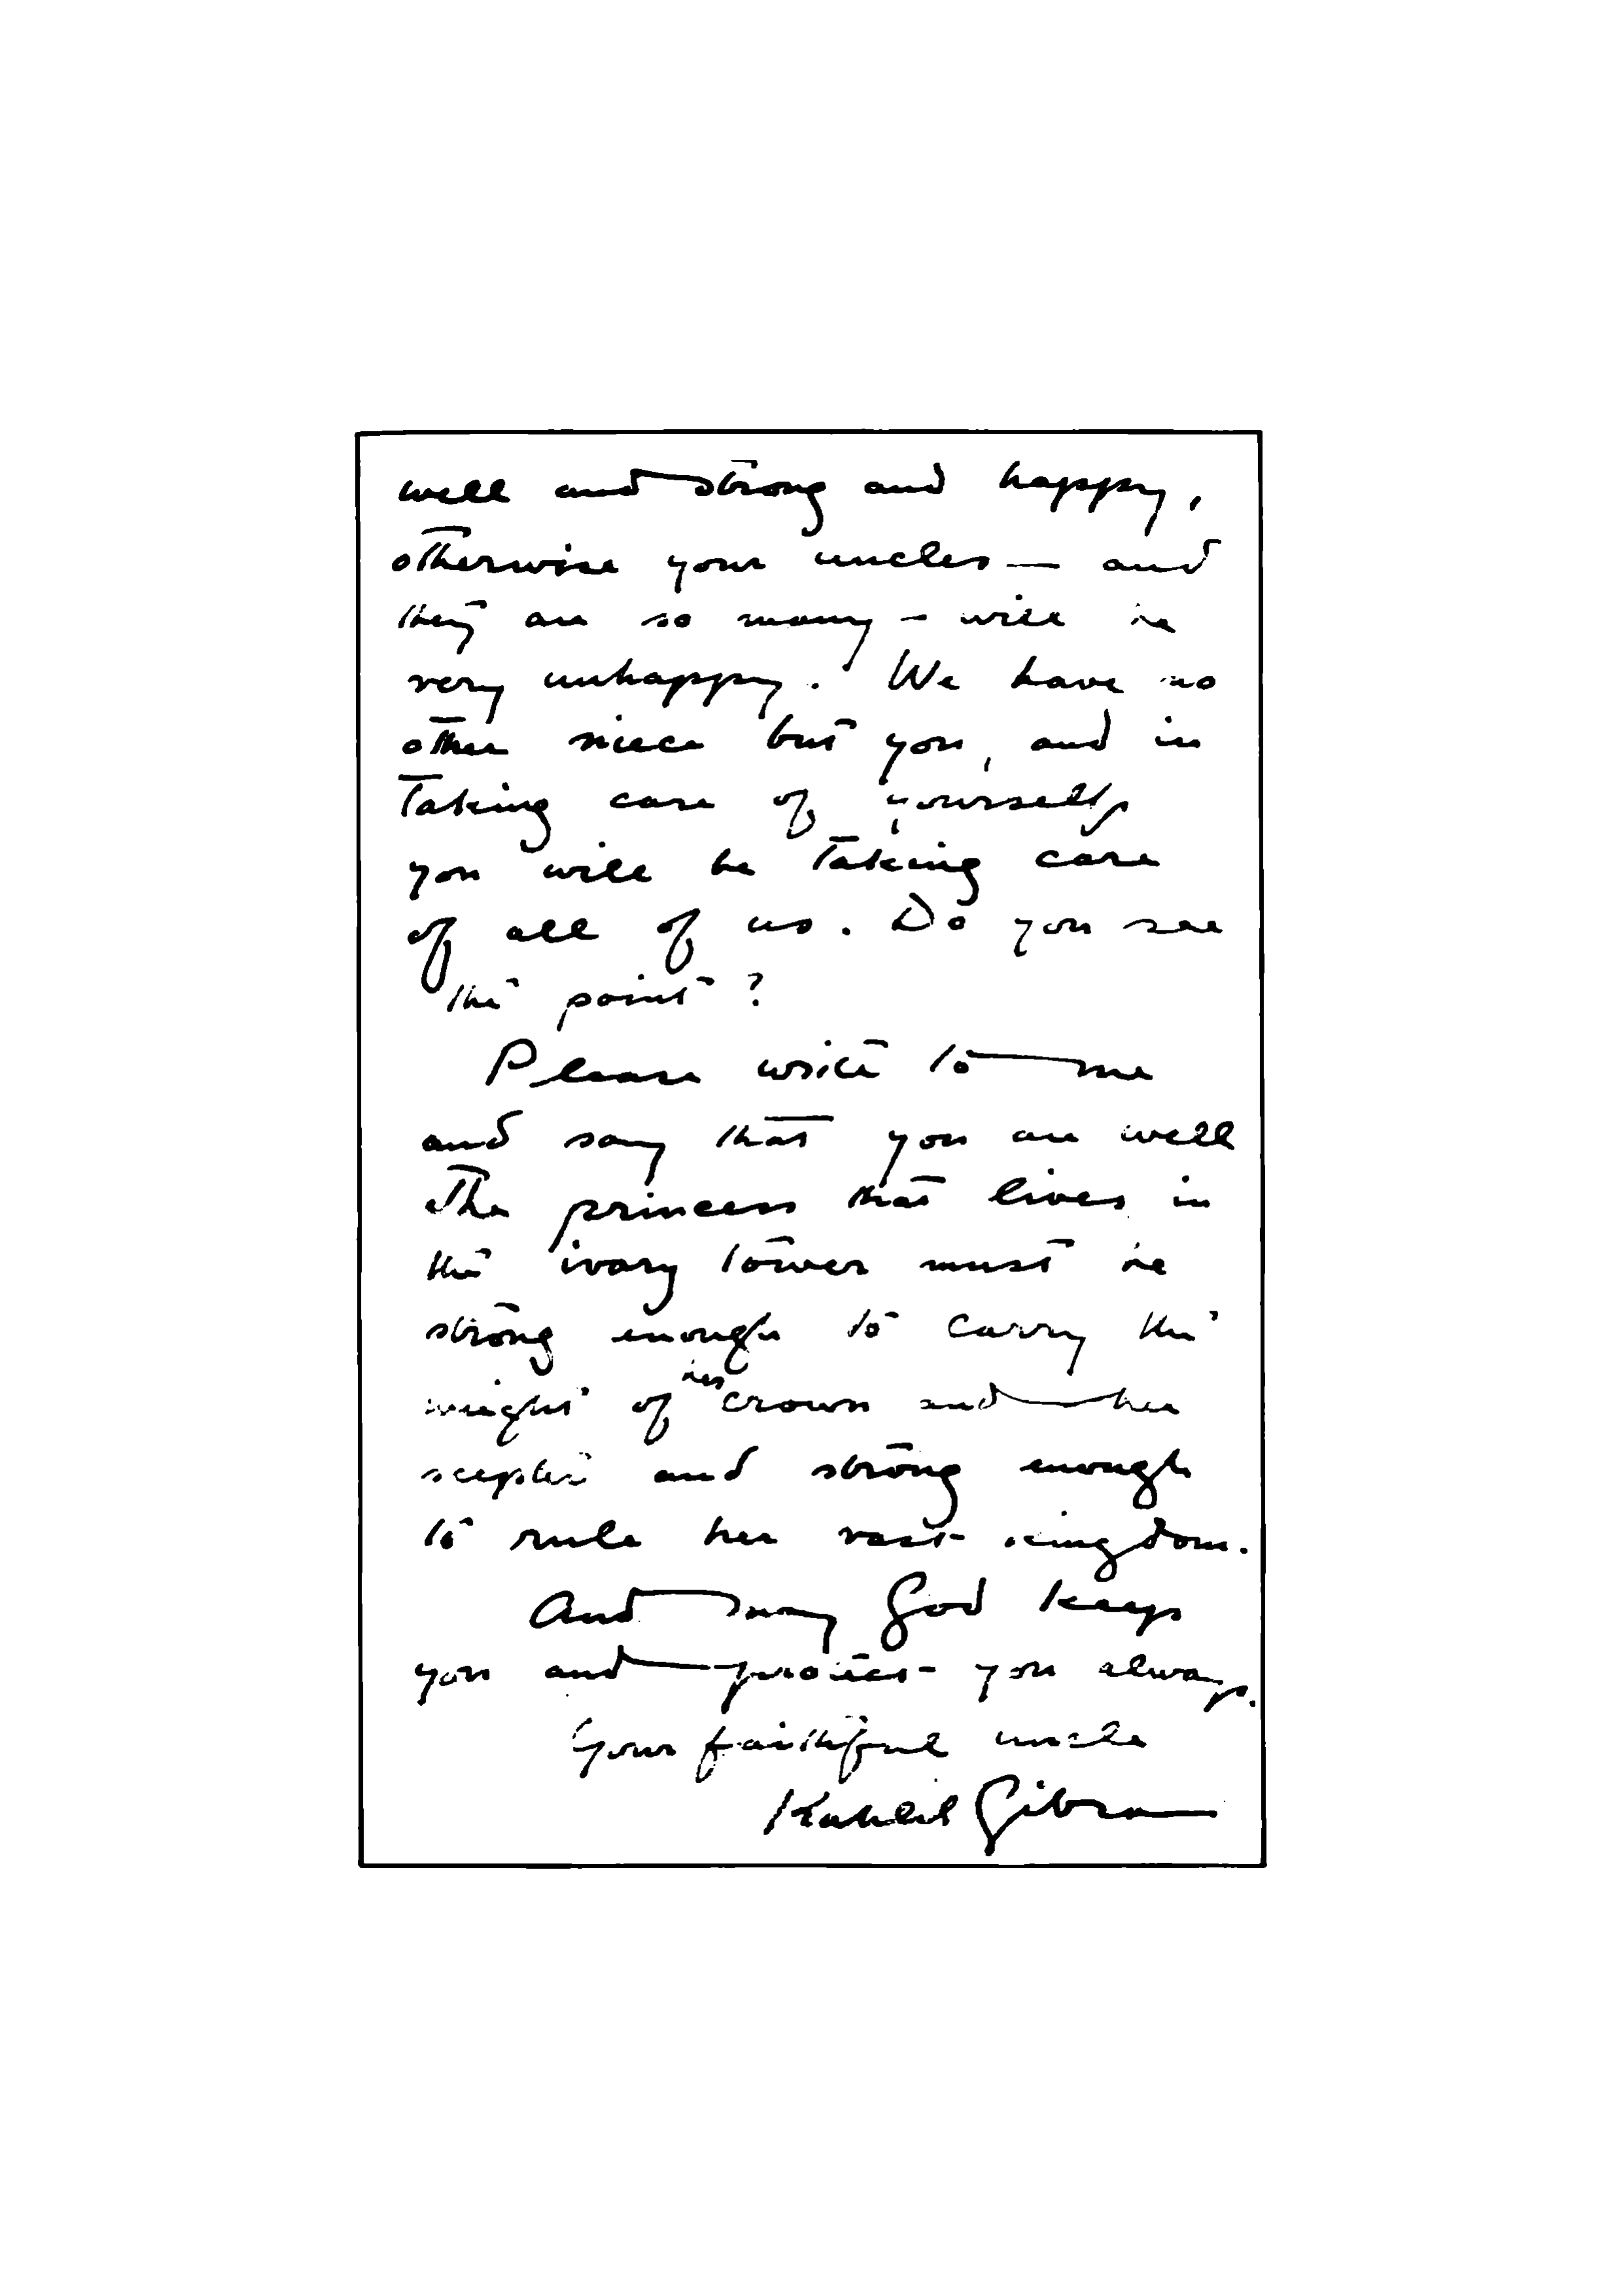 well and strong and happy,
otherwise your uncles — and
they are so many — will be
very unhappy. We have no
other niece but you, and in
Taking care of yourself
you will be Taking care
of all of us. Do you see
the point?
Please write to me
and say that you are well
The princess that lives in
the ivory tower must be
strong enough to carry the
weight of her crown and her
scepter and strong enough
to rule her vast kingdom.
And may God keep
you and protect you always.
Your faithful uncle
Kahlil Gibran